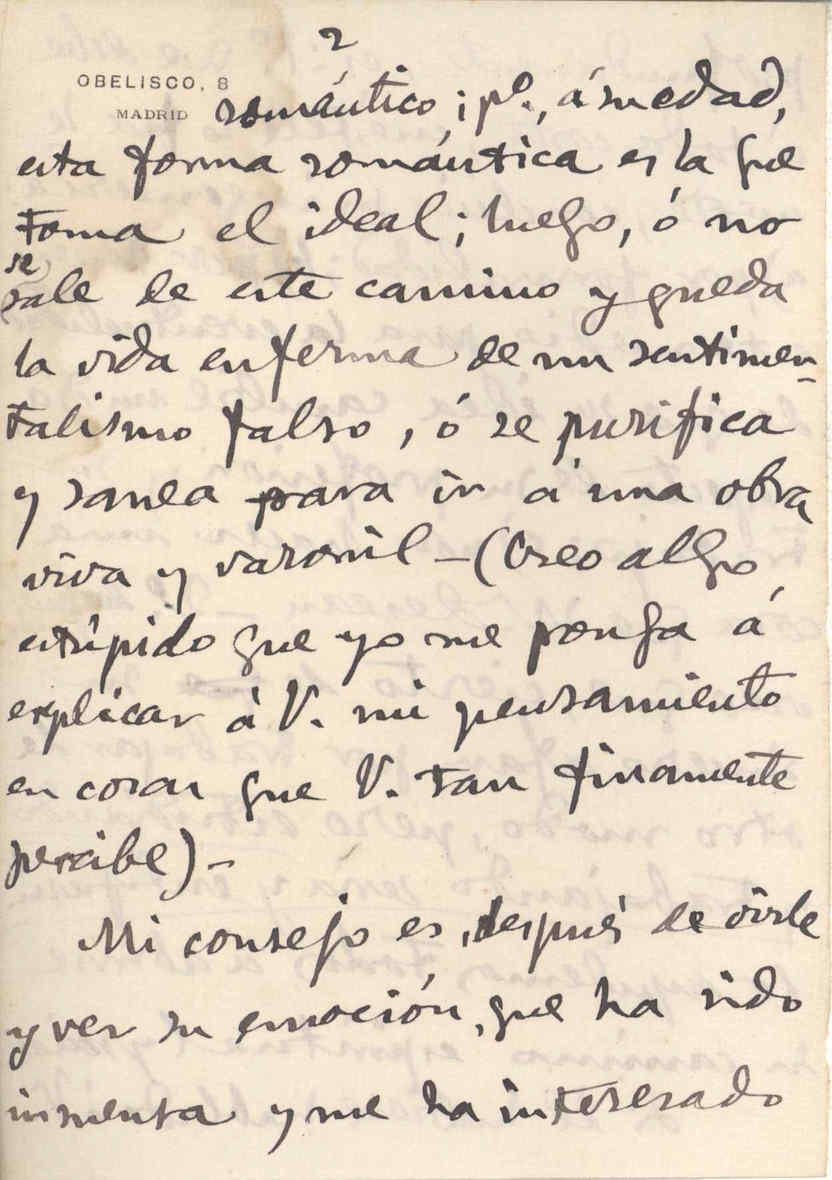 2
OBELISCO, 8
MADRID
romántico; pº., á su edad,
esta forma romántica es la que
toma el ideal; luego, ó no
se
sale de este camino y queda
la vida enferma de un sentimen-
talismo falso, ó se purifica
y sanea para ir á una obra
viva y varonil - (Creo algo
estúpido que yo me ponga á
explicar á V. mi pensamiento
en cosas que V. tan finamente
percibe) -
Mi consejo es, después de oirle
y ver su emoción, que ha sido
inmensa y me ha interesado